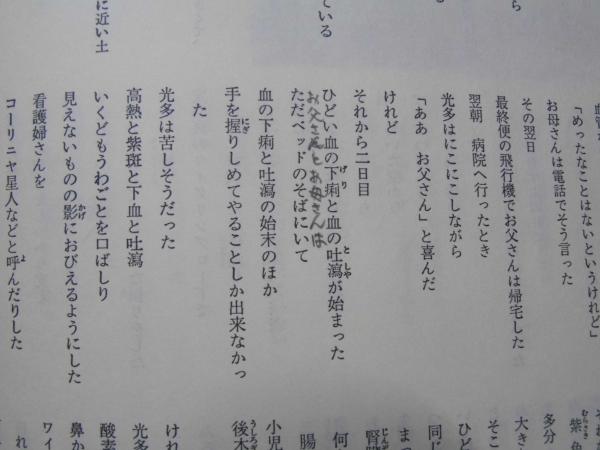 ら
ている
に近い土
「めったなことはないというけれど」
お母さんは電話でそう言った
その翌日
最終便の飛行機でお父さんは帰宅した
翌朝　病院へ行ったとき
光多はにこにこしながら
「ああ　お父さん」と喜んだ
けれど
それから二日目
ひどい血の下痢と血の吐瀉が始まった
お父さんとお母さんは
ただベッドのそばにいて
血の下痢と吐瀉の始末のほか
手を握りしめてやることしか出来なかっ
た
光多は苦しそうだった
高熱と紫斑と下血と吐瀉
いくどもうわごとを口ばしり
見えないものの影におびえるようにした
看護婦さんを
コーリニヤ星人などと呼んだりした
紫色
多分
大き
そこ
ひど
同じ
まっ
何
腸
小児
後木
けれ
光多
酸素
鼻か
ワイ
れ